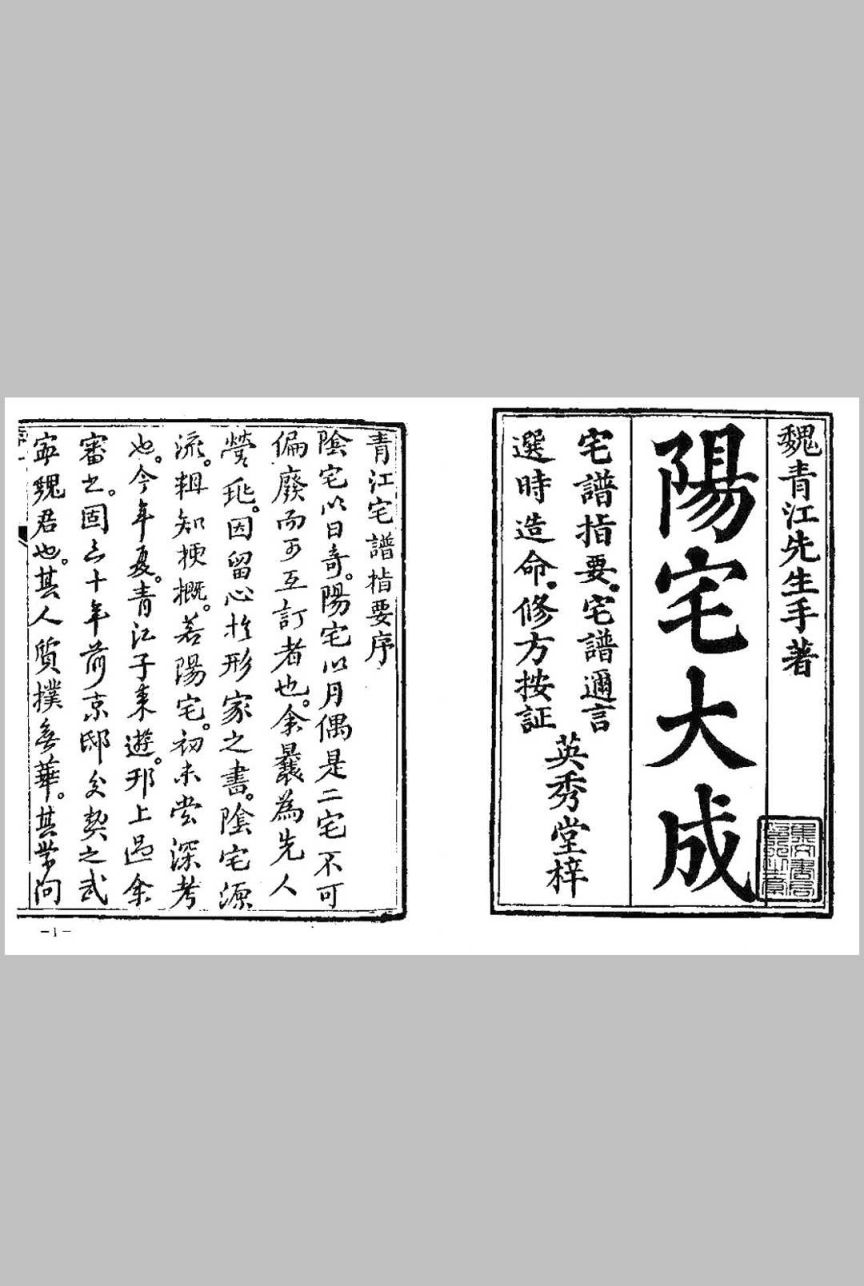 魏青江先生手著
陽宅大成
宅譜指要。宅譜邇言
選時造命。修方按証
英秀堂梓
青江宅譜指要序
陰宅以日奇。陽宅以月偶是二宅不可
偏廢而可互訂者也。余曩為先人
營兆。因留心於形家之書。陰宅源
流。輯知梗概。若陽宅。初未嘗深考
也。今年夏。青江子来遊。邗上過余
審之。固三十年前京邸交契之武
寧魏君也。其人質撲無華。其學問
-1-